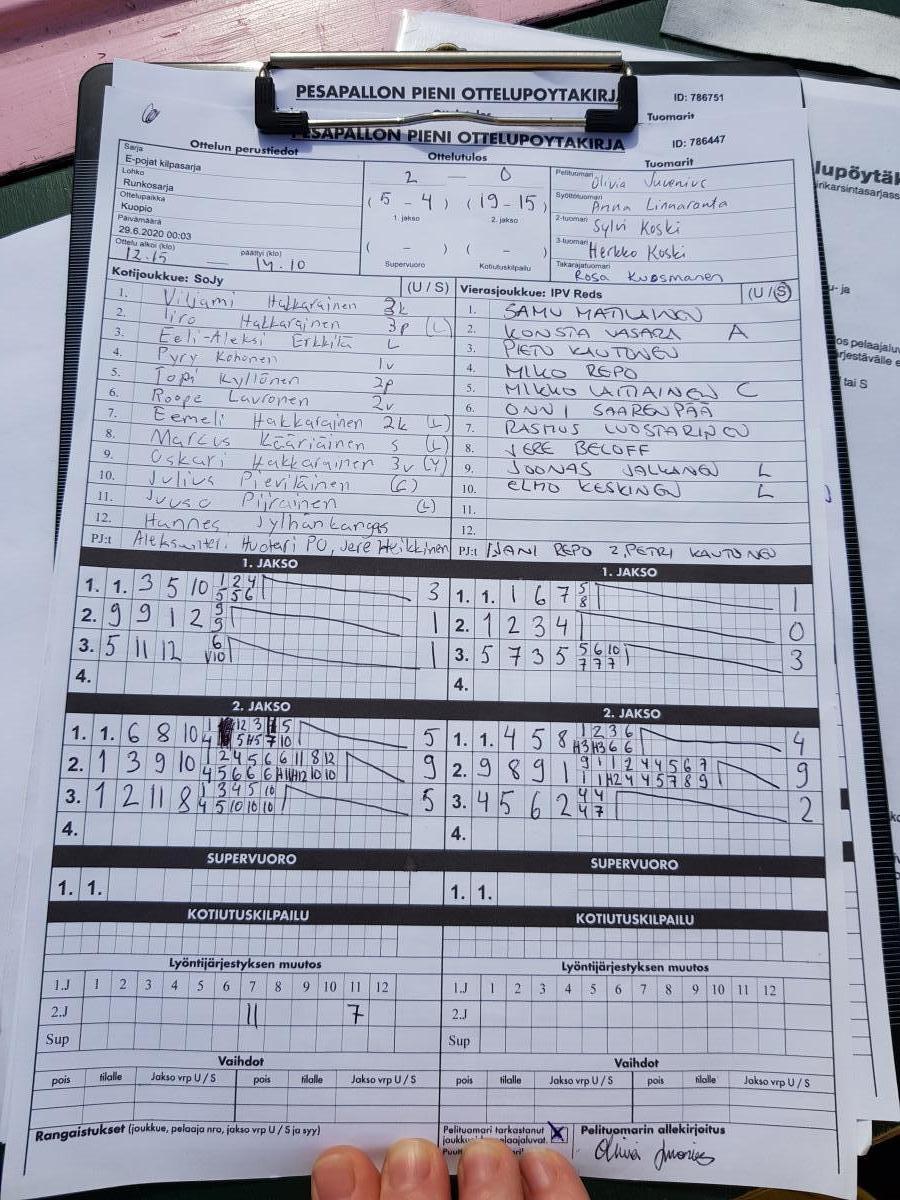 PESAPALLON PIENI OTTELUPOYTAKIRJ
ID: 786751
Tuomarit
PESAPALLON PIENI OTTELUPOYTAKIRJA
ID: 786447
Ottelun perustiedot
Ottelutulos
Tuomarit
Sarja
E-pojat kilpasarja
Lohko
Runkosarja
Ottelupaikka
Kuopio
Päivämäärä
29.6.2020 00:03
Ottelu alkoi (klo) päättyi (klo)
12.15 — 14.10
2 — 0
(5 - 4) (19 - 15)
1. jakso 2. jakso
( - ) ( - )
Supervuoro Kotiutuskilpailu
Pelituomari Olivia Juvenius
Syöttötuomari Anna Linnaranta
2-tuomari Sylvi Koski
3-tuomari Herkko Koski
Takarajatuomari Rosa Kuosmanen
Kotijoukkue: SoJy (U / S)
1. Viljami Hakkarainen 3k
2. Iiro Hakkarainen 3p (L)
3. Eeli-Aleksi Erkkilä L
4. Pyry Kohonen 1v
5. Topi Kyllönen 2p
6. Roope Lauronen 2v
7. Eemeli Hakkarainen 2k (L)
8. Marcus Kääriäinen S (L)
9. Oskari Hakkarainen 3v (Y)
10. Julius Pieviläinen (C)
11. Juuso Piirainen (L)
12. Hannes Jylhänkangas
PJ:t Huotari PO, Jere Heikkinen
Vierasjoukkue: IPV Reds (U / S)
1. SAMU MATILAINEN
2. KONSTA VASARA A
3. PIETU KAUTONEN
4. MIKO REPO
5. MIKKO LAITIAINEN C
6. ONNI SAARENPÄÄ
7. RASMUS LUOSTARINEN
8. JERE BELOFF
9. JOONAS JALKANEN L
10. ELMO KESKINEN L
11.
12.
PJ:t 1, JANI REPO 2, PETRI KAUTONEN
1. JAKSO
1. 1. 3 5 10 1 2 4 3
5 5 6
2. 9 9 1 2 9 1
9
3. 5 11 12 6 1
V10
4.
1. JAKSO
1. 1. 1 6 7 5 1
8
2. 1 2 3 4 0
3. 5 7 3 5 5 6 10 3
7 7 7
4.
2. JAKSO
1. 1. 6 8 10 1 12 3 5 5
4 5 H5 7 10
2. 1 3 9 10 1 2 4 5 6 6 11 8 12 9
4 5 6 6 6 H11 H12 10 10
3. 1 2 11 8 1 3 4 5 10 5
4 5 10 10 10
4.
2. JAKSO
1. 1. 4 5 8 1 2 3 6 4
H3 H3 6 6
2. 9 8 9 1 9 1 1 2 4 4 5 6 7 9
1 1 H2 4 4 5 7 8 9
3. 4 5 6 2 4 4 2
4 7
4.
SUPERVUORO
1. 1.
SUPERVUORO
1. 1.
KOTIUTUSKILPAILU
KOTIUTUSKILPAILU
Lyöntijärjestyksen muutos
1.J 1 2 3 4 5 6 7 8 9 10 11 12
2.J 11 7
Sup
Lyöntijärjestyksen muutos
1.J 1 2 3 4 5 6 7 8 9 10 11 12
2.J
Sup
Vaihdot
pois tilalle Jakso vrp U / S pois tilalle Jakso vrp U / S
Vaihdot
pois tilalle Jakso vrp U / S pois tilalle Jakso vrp U / S
Rangaistukset (joukkue, pelaaja nro, jakso vrp U / S ja syy)
Pelituomari tarkastanut
X
Pelituomarin allekirjoitus